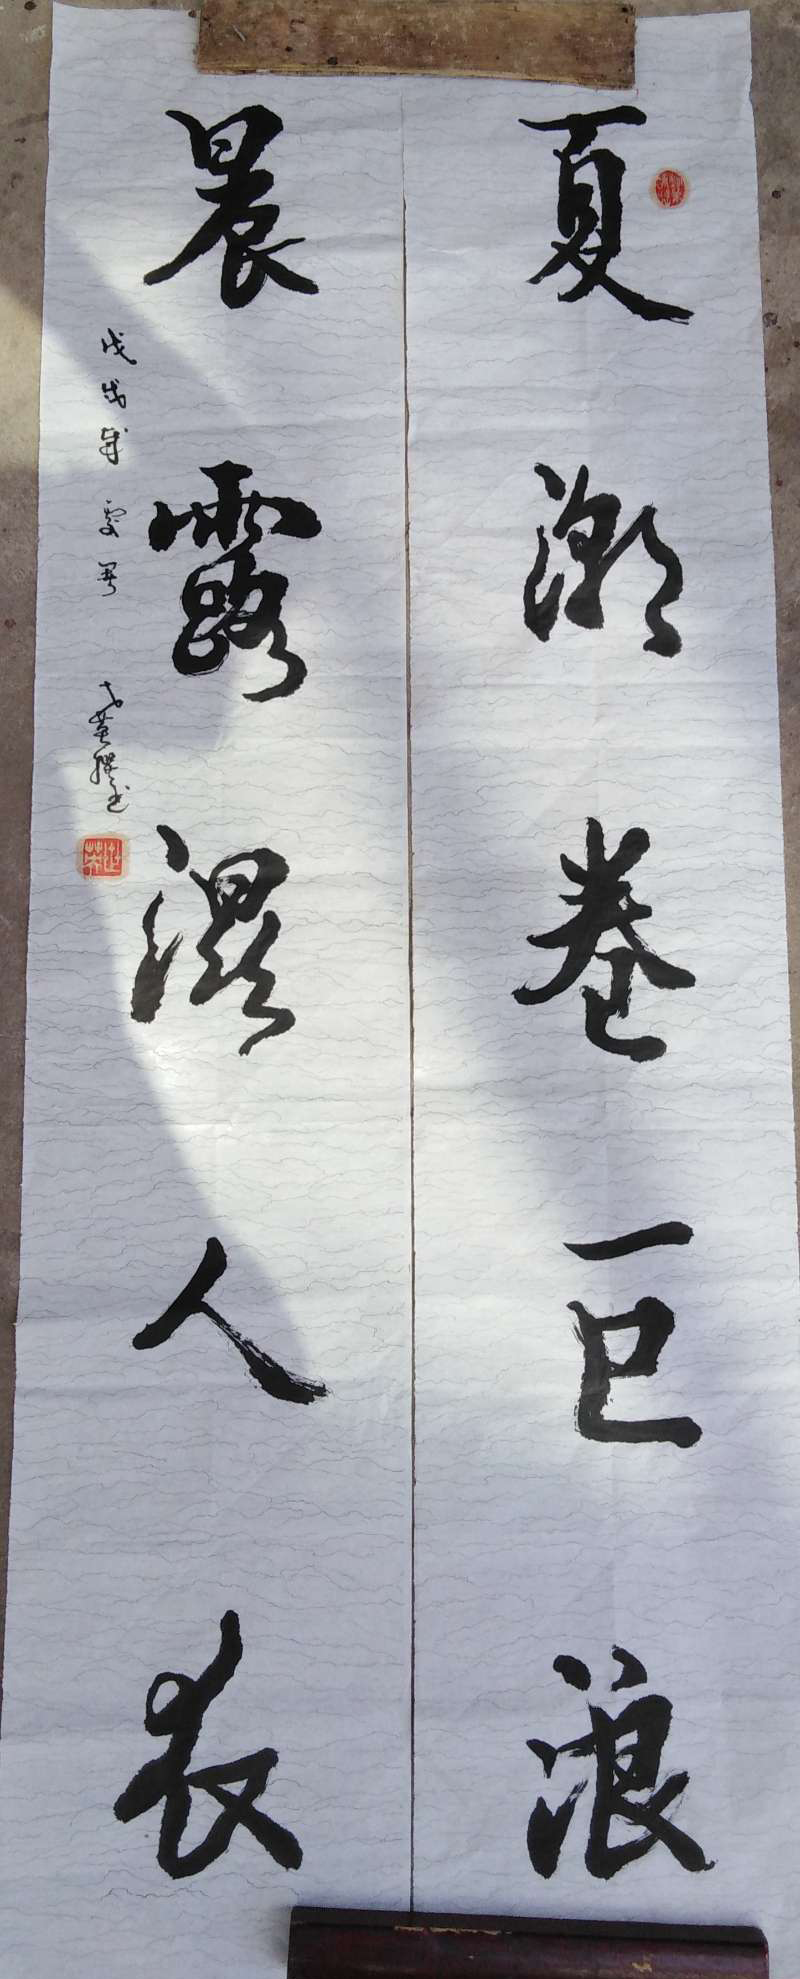 夏潮卷巨浪
晨露湿人衣
戊戌年